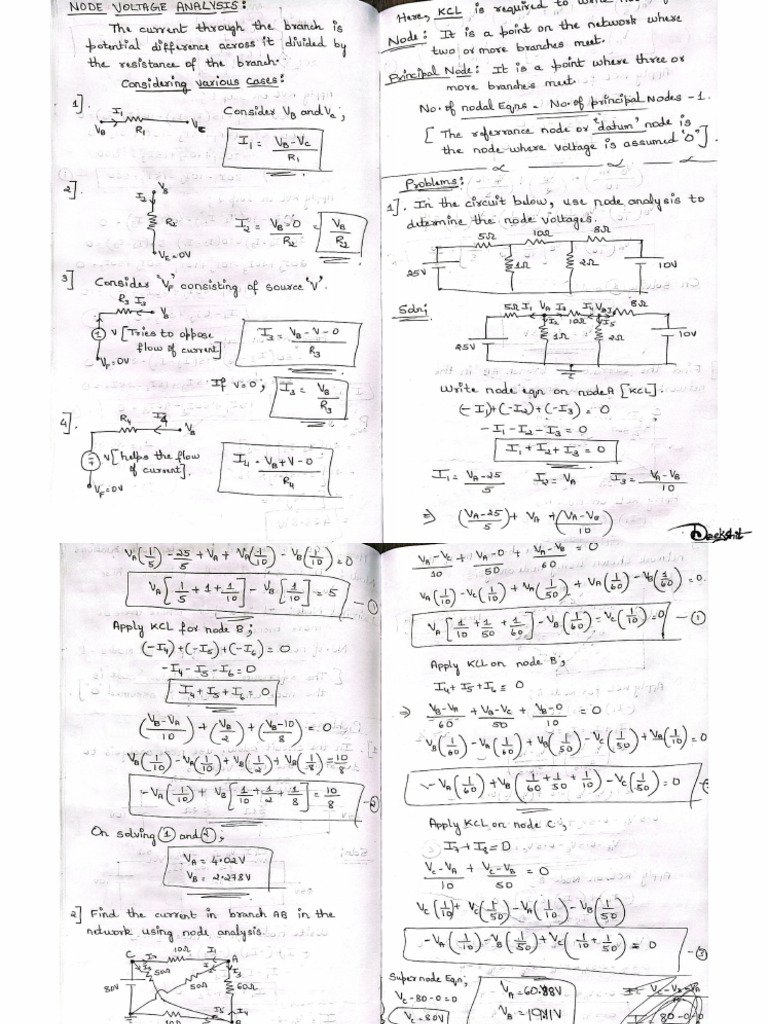 NODE VOLTAGE ANALYSIS:
The current through the branch is
potential difference across it divided by
the resistance of the branch.
Considering various cases:
1].
I₁
V_B
R₁
V_C
Consider V_B and V_C;
I₁ = (V_B-V_C)/R₁
2].
V_B
I₂
R₂
V_C=0V
I₂ = (V_B-0)/R₂ = V_B/R₂
3]
Consider 'V_F' consisting of source 'V'.
R₃ I₃
V_B
V [Tries to oppose
flow of current]
V_F=0V
I₃ = (V_B-V-0)/R₃
If V=0; I₃ = V_B/R₃
4].
R₄ I₄
V_B
V [helps the flow
of current].
V_F=0V
I₄ = (V_B+V-0)/R₄
Here, KCL is required to
Node: It is a point on the network where
two or more branches meet.
Principal Node: It is a point where three or
more branches meet.
No. of nodal Eqns = No. of principal Nodes - 1.
[ The referrance node or "datum" node is
the node where voltage is assumed "0"].
Problems:
1]. In the circuit below, use node analysis to
determine the node voltages.
5Ω 10Ω 8Ω
25V 1Ω 2Ω 10V
Soln;
5Ω I₁ V_A I₃ I₄ V_B I₆ 8Ω
I₂ 10Ω I₅
25V 1Ω 2Ω 10V
Write node eqn on node A [KCL]
(-I₁)+(-I₂)+(-I₃) = 0
-I₁-I₂-I₃ = 0
I₁+I₂+I₃ = 0
I₁ = (V_A-25)/5 I₂ = V_A I₃ = (V_A-V_B)/10
⇒ (V_A-25)/5 + V_A + (V_A-V_B)/10
Deekshit
V_A(1/5) - 25/5 + V_A + V_A(1/10) - V_B(1/10) = 0
V_A[1/5 + 1 + 1/10] - V_B[1/10] = 5 — ①
Apply KCL for node B;
(-I₄)+(-I₅)+(-I₆) = 0
-I₄-I₅-I₆ = 0
I₄+I₅+I₆ = 0
(V_B-V_A)/10 + (V_B/2) + (V_B-10)/8 = 0
V_B(1/10) - V_A(1/10) + V_B(1/2) + V_B(1/8) = 10/8
-V_A(1/10) + V_B[1/10 + 1/2 + 1/8] = 10/8 — ②
On solving ① and ②;
V_A = 4.02V
V_B = 2.278V
2] Find the current in branch AB in the
network using node analysis.
C 10Ω I₁ A
I₂ I₃
80V 50Ω 50Ω 60Ω
10Ω B
(V_A-V_C)/10 + (V_A-0)/50 + (V_A-V_B)/60 = 0
V_A(1/10) - V_C(1/10) + V_A(1/50) + V_A(1/60) - V_B(1/60) = 0.
V_A[1/10 + 1/50 + 1/60] - V_B(1/60) - V_C(1/10) = 0 — ①
Apply KCL on node B;
I₄+I₅+I₆ = 0
⇒ (V_B-V_A)/60 + (V_B-V_C)/50 + (V_B-0)/10 = 0
V_B(1/60) - V_A(1/60) + V_B(1/50) - V_C(1/50) + V_B(1/10) = 0
-V_A(1/60) + V_B(1/60 + 1/50 + 1/10) - V_C(1/50) = 0
Apply KCL on node C;
I₇+I₈ = 0
(V_C-V_A)/10 + (V_C-V_B)/50 = 0
V_C(1/10) + V_C(1/50) - V_A(1/10) - V_B(1/50)
-V_A(1/10) - V_B(1/50) + V_C(1/10 + 1/50) = 0 — ③
Supernode Eqn;
V_C-80-0 = 0
V_C = 80V
V_A = 60.88V